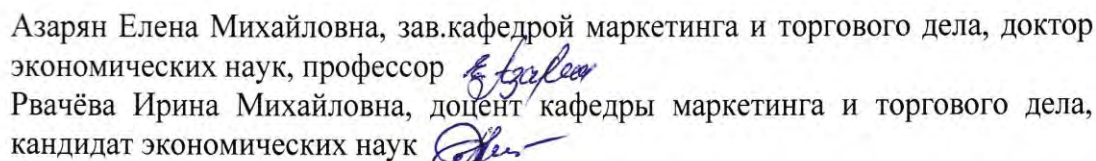 Азарян Елена Михайловна, зав.кафедрой маркетинга и торгового дела, доктор
экономических наук, профессор
Рвачёва Ирина Михайловна, доцент кафедры маркетинга и торгового дела,
кандидат экономических наук